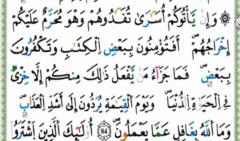 وَإِن يَأْتُوكُمْ أُسَٰرَىٰ تُفَٰدُوهُمْ وَهُوَ مُحَرَّمٌ عَلَيْكُمْ
إِخْرَاجُهُمْ ۚ أَفَتُؤْمِنُونَ بِبَعْضِ ٱلْكِتَٰبِ وَتَكْفُرُونَ
بِبَعْضٍ ۚ فَمَا جَزَآءُ مَن يَفْعَلُ ذَٰلِكَ مِنكُمْ إِلَّا خِزْىٌ
فِى ٱلْحَيَوٰةِ ٱلدُّنْيَا ۖ وَيَوْمَ ٱلْقِيَٰمَةِ يُرَدُّونَ إِلَىٰٓ أَشَدِّ ٱلْعَذَابِ ۗ
وَمَا ٱللَّهُ بِغَٰفِلٍ عَمَّا تَعْمَلُونَ 84 أُو۟لَٰٓئِكَ ٱلَّذِينَ ٱشْتَرَوُا۟